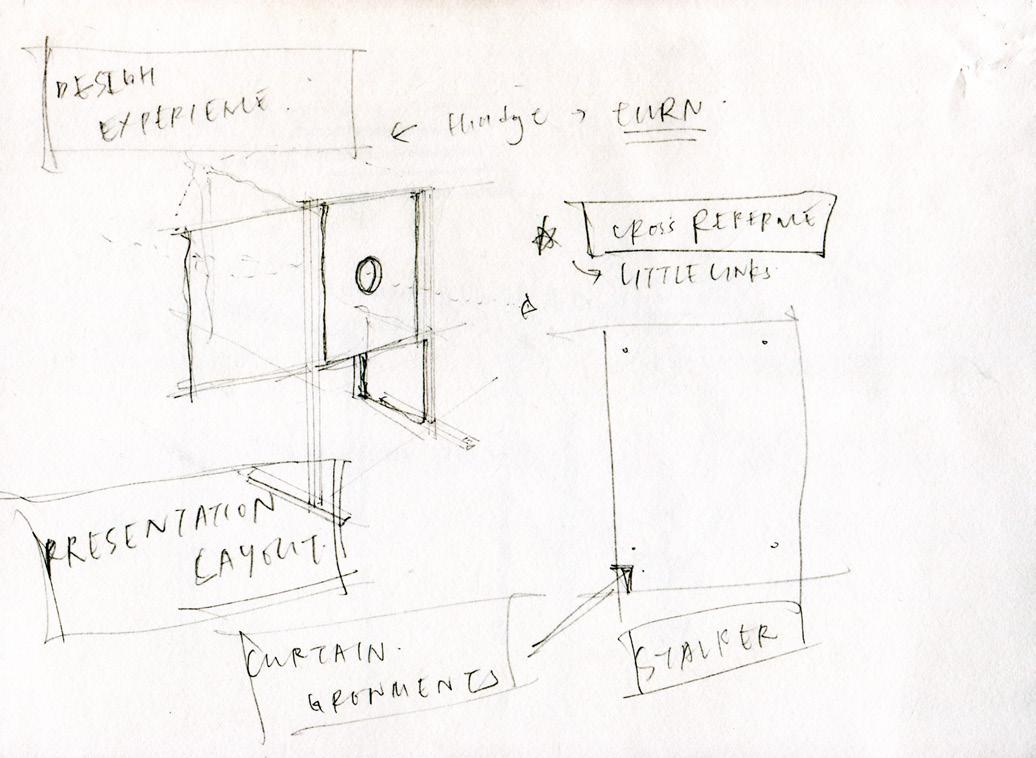 DESIGN
EXPERIENCE.
← Hindge → TURN.
CROSS REFERENCE
→ LITTLE LINKS.
PRESENTATION
LAYOUT.
CURTAIN.
STALKER